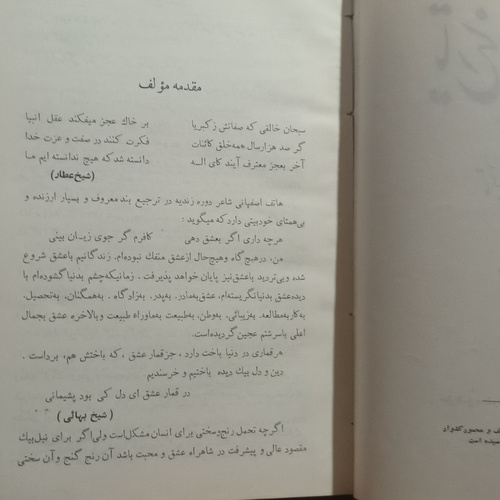 مقدمه مؤلف
سبحان خالقی که صفاتش ز کبریا بر خاك عجز میفکند عقل انبیا
گر صد هزار سال همه خلق کائنات فکرت کنند در صفت و عزت خدا
آخر بعجز معترف آیند کای اله دانسته شد که هیچ ندانسته ایم ما
(شیخ عطار)
هاتف اصفهانی شاعر دوره زندیه در ترجیع بند معروف و بسیار ارزنده و
بی‌همتای خود بیتی دارد که میگوید :
هرچه داری اگر بعشق دهی کافرم گر جوی زیـان بینی
من، در هیچ گاه و هیچ حال از عشق منفك نبوده‌ام. زندگانیم با عشق شروع
شده و بی‌تردید با عشق نیز پایان خواهد پذیرفت . زمانیکه چشم بدنیا گشوده‌ام با
دیده عشق بدنیا نگریسته‌ام. عشق به مادر. به پدر. به زادگاه . به همگنان، به تحصیل.
به کار به مطالعه. به زیبائی. به وطن، به طبیعت به ماوراء طبیعت و بالاخره عشق بجمال
اعلی با سرشتم عجین گردیده‌است.
هر قماری در دنیا باخت دارد ، جز قمار عشق ، که باختش هم، برد است .
دین و دل بیك دیده باختیم و خرسندیم
در قمار عشق ای دل کی بود پشیمانی
( شیخ بهائی )
اگرچه تحمل رنج و سختی برای انسان مشکل است ولی اگر برای نیل بیك
مقصود عالی و پیشرفت در شاهراه عشق و محبت باشد آن رنج گنج و آن سختی